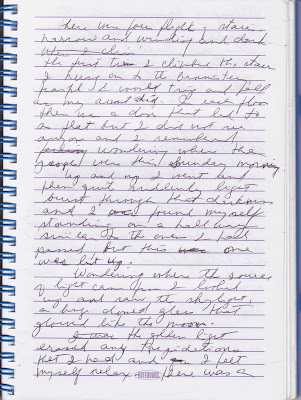 There were four flights of stairs,
narrow and winding and dark
The first time I climbed the stairs
I hung on to the bannister
fearful I would trip and fall
as my aunt did. On each floor
there was a door that led to
a flat but I did not see
anyone and I remember
wondering where the
people were this Sunday morning
Up and up I went and
then quite suddenly light
burst through that darkness
and I found myself
standing on a hallway
similar to the ones I had
passed but this one
was lit up.
Wondering where the source
of light came from I looked
up and saw the skylight,
a huge clouded glass that
glowed like the moon.
the light
erased any trepidations
that I had and I felt
myself relax. There was a
NOTEBOOK